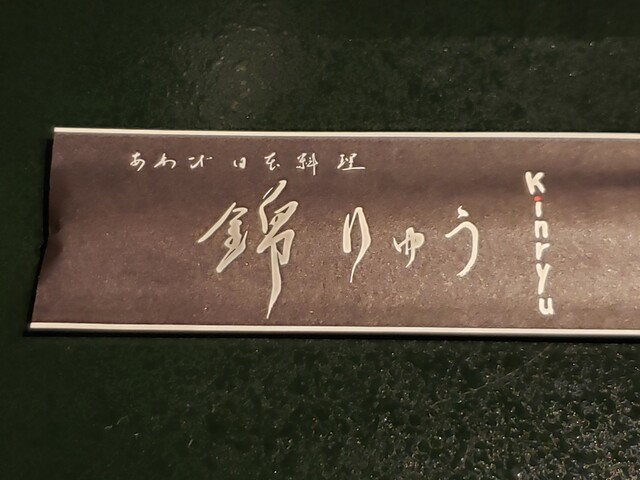 あわび 日本料理
錦りゅう
Kinryu